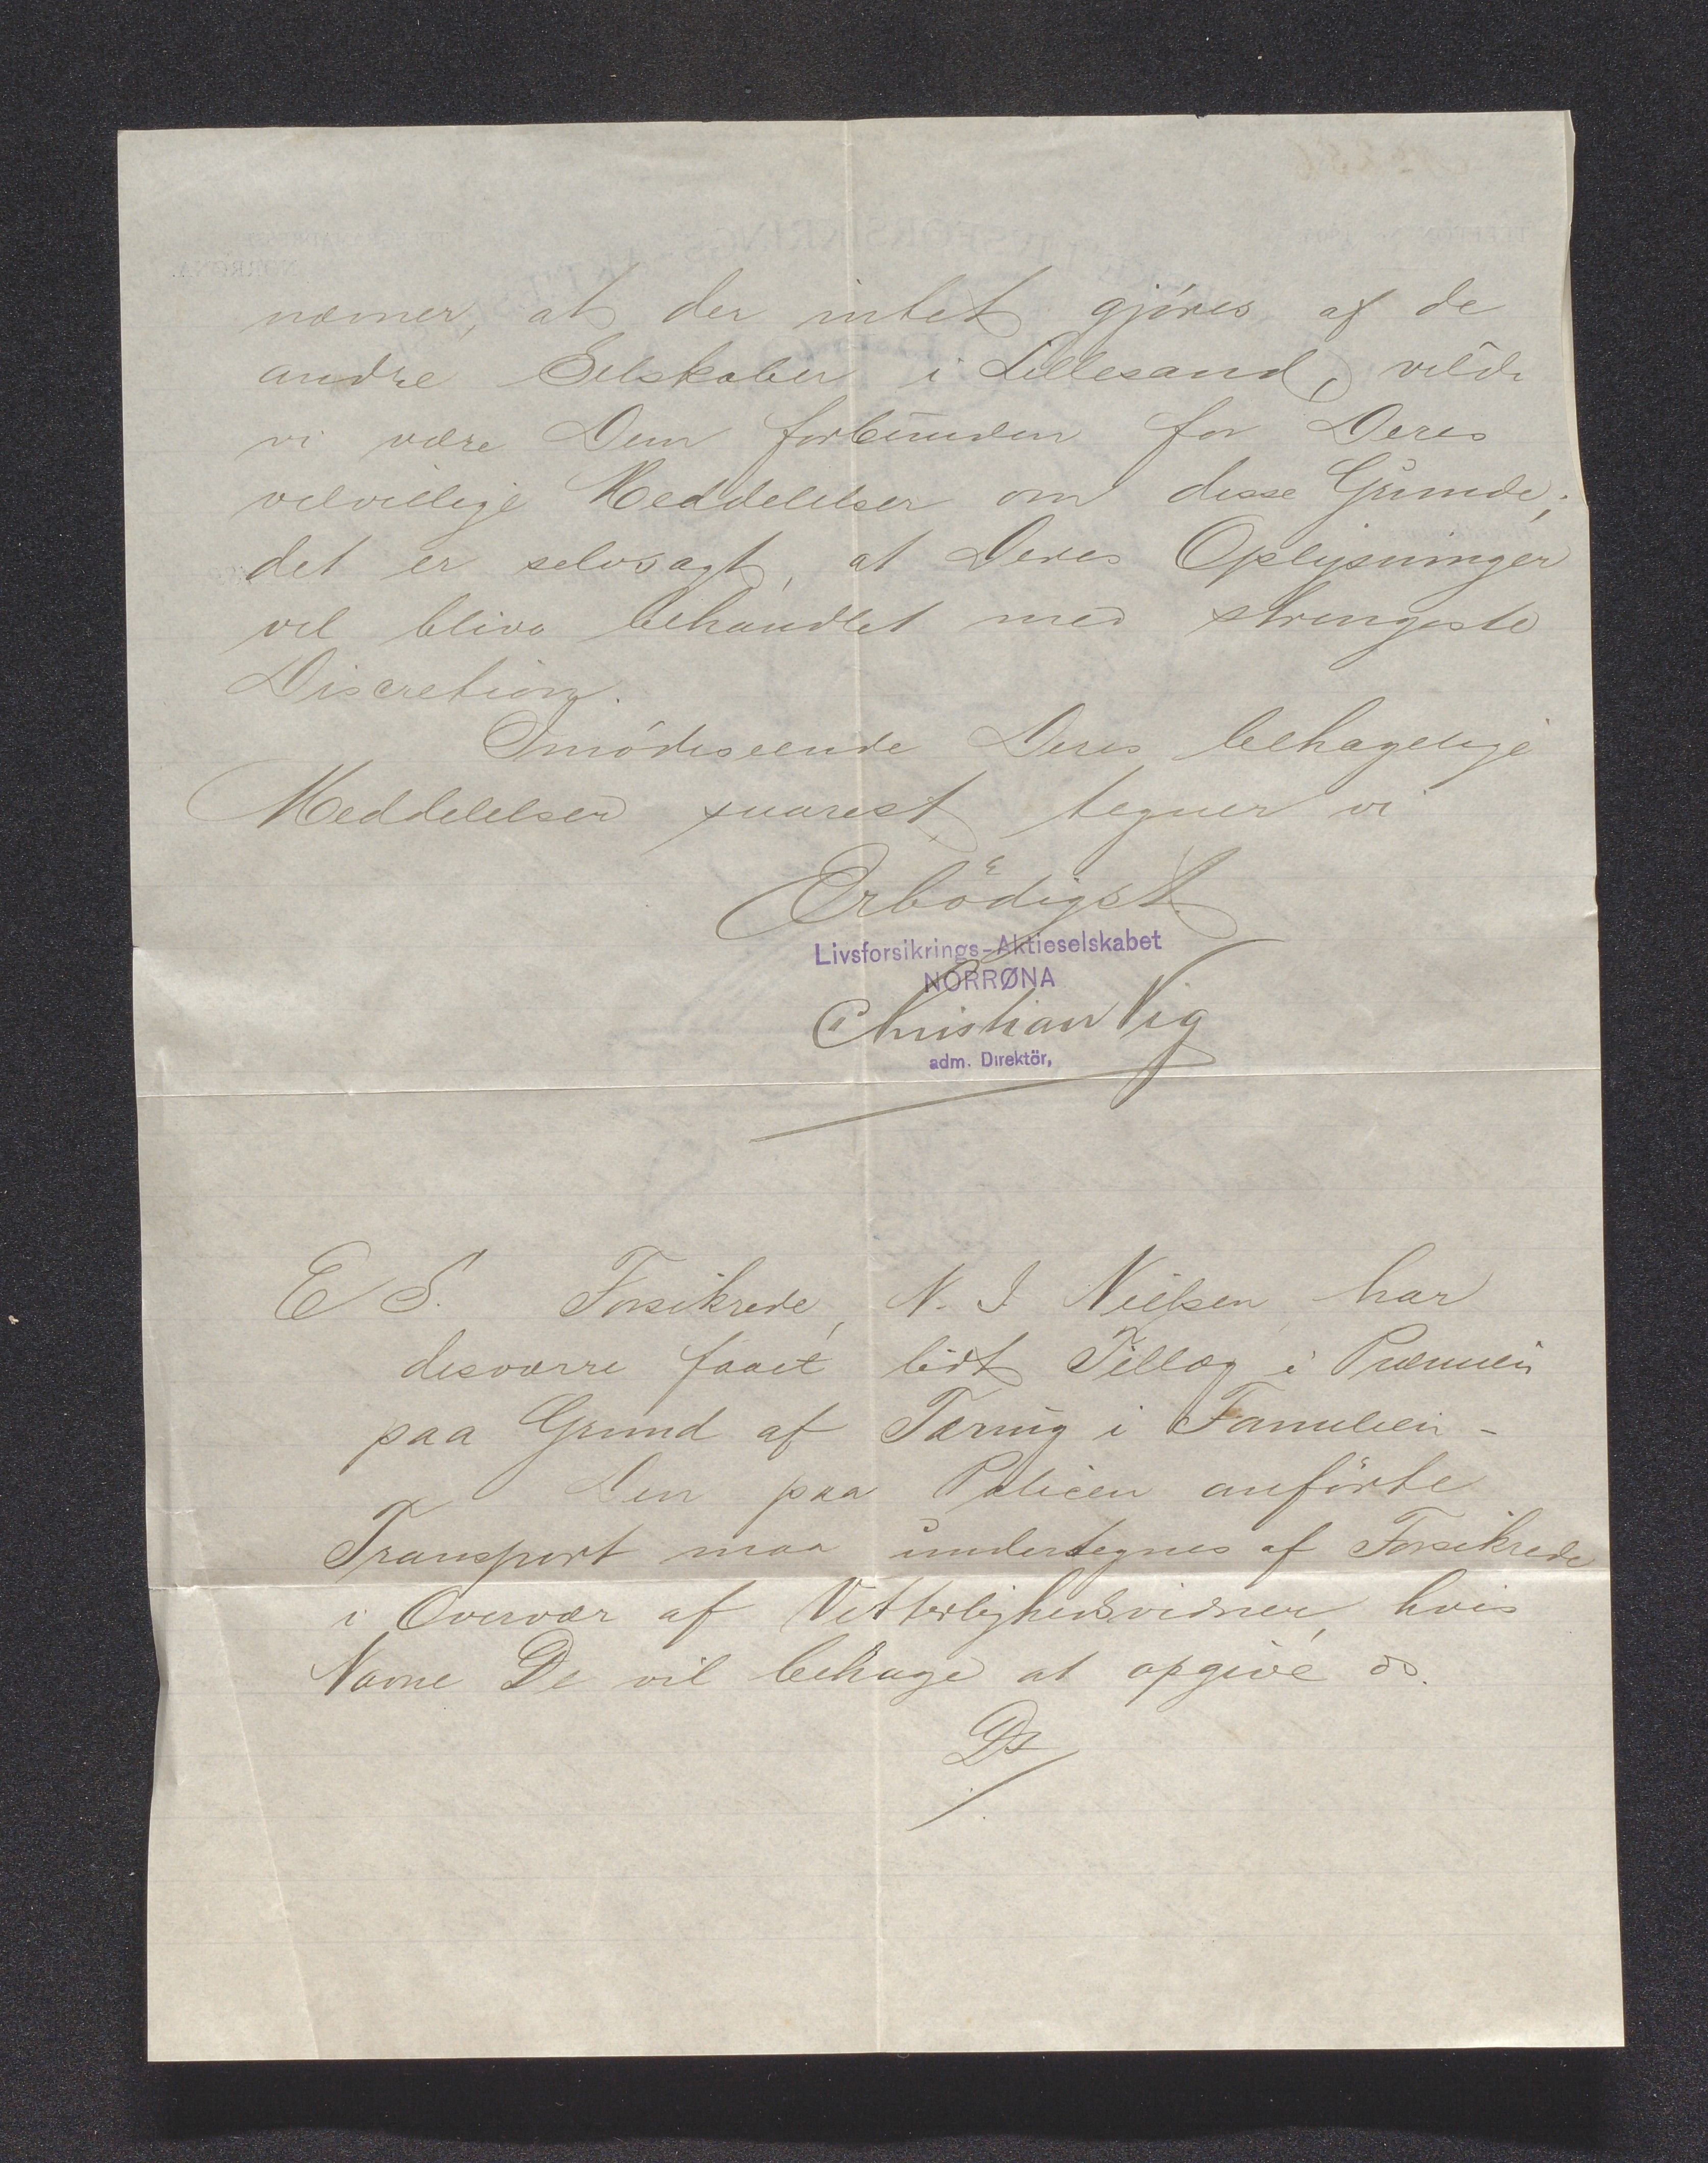 nævner, at der intet gjöres af de
andre Selskaber i Lillesand, vilde
vi være Dem forbunden for Deres
velvillige Meddelelser om disse Grunde;
det er selvsagt, at Deres Oplysninger
vil blive behandlet med strengeste
Discretion.
Imödeseende Deres behagelige
Meddelelser snarest tegner vi
Erbödigst
Livsforsikrings-Aktieselskabet
NORRØNA
Christian Vig
adm. Direktör,
E S. Forsikrede, N. J. Nielsen, har
desværre faaet lidt Tillæg i Præmien
paa Grund af Tæring i Familien -
Den paa Policen anförte
Transport maa undertegnes af Forsikrede
i Overvær af Vitterlighedsvidner, hvis
Navne De vil behage at opgive os.
Ds